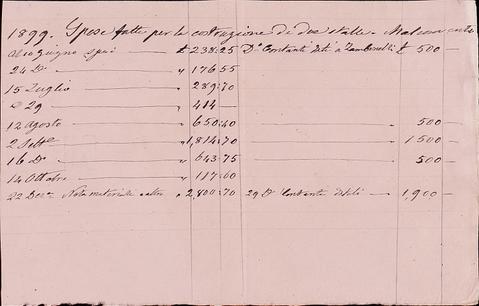 1899. Spese fatte per la costruzione di due stalle.
Giugno spesi £ 238:25 Dº Contanti dati a Zambinelli £ 500 —
24 Dº " 176 55
15 Luglio " 289:70
" 29 " 414 —
12 Agosto " 650:40 500 —
2 Sette " 1,814:70 1500 —
16 Dº " 643:75 500 —
14 Ottobre " 117:60
22 Dece Nota materiale altro " 2,800:70 29 Dº Contante dateli 1,900 —